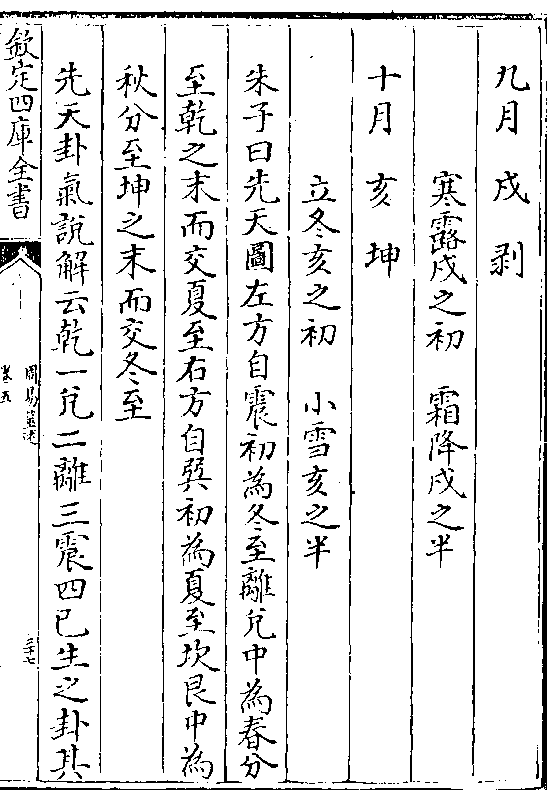 九月　戌　剥
寒露戌之初　霜降戌之半
十月　亥　坤
立冬亥之初　小雪亥之半
朱子曰先天圖左方自震初為冬至離兊中為春分
至乾之末而交夏至右方自巽初為夏至坎艮中為
秋分至坤之末而交冬至
先天卦氣說解云乾一兊二離三震四已生之卦其
欽定四庫全書
周易筮述
卷五
三十七